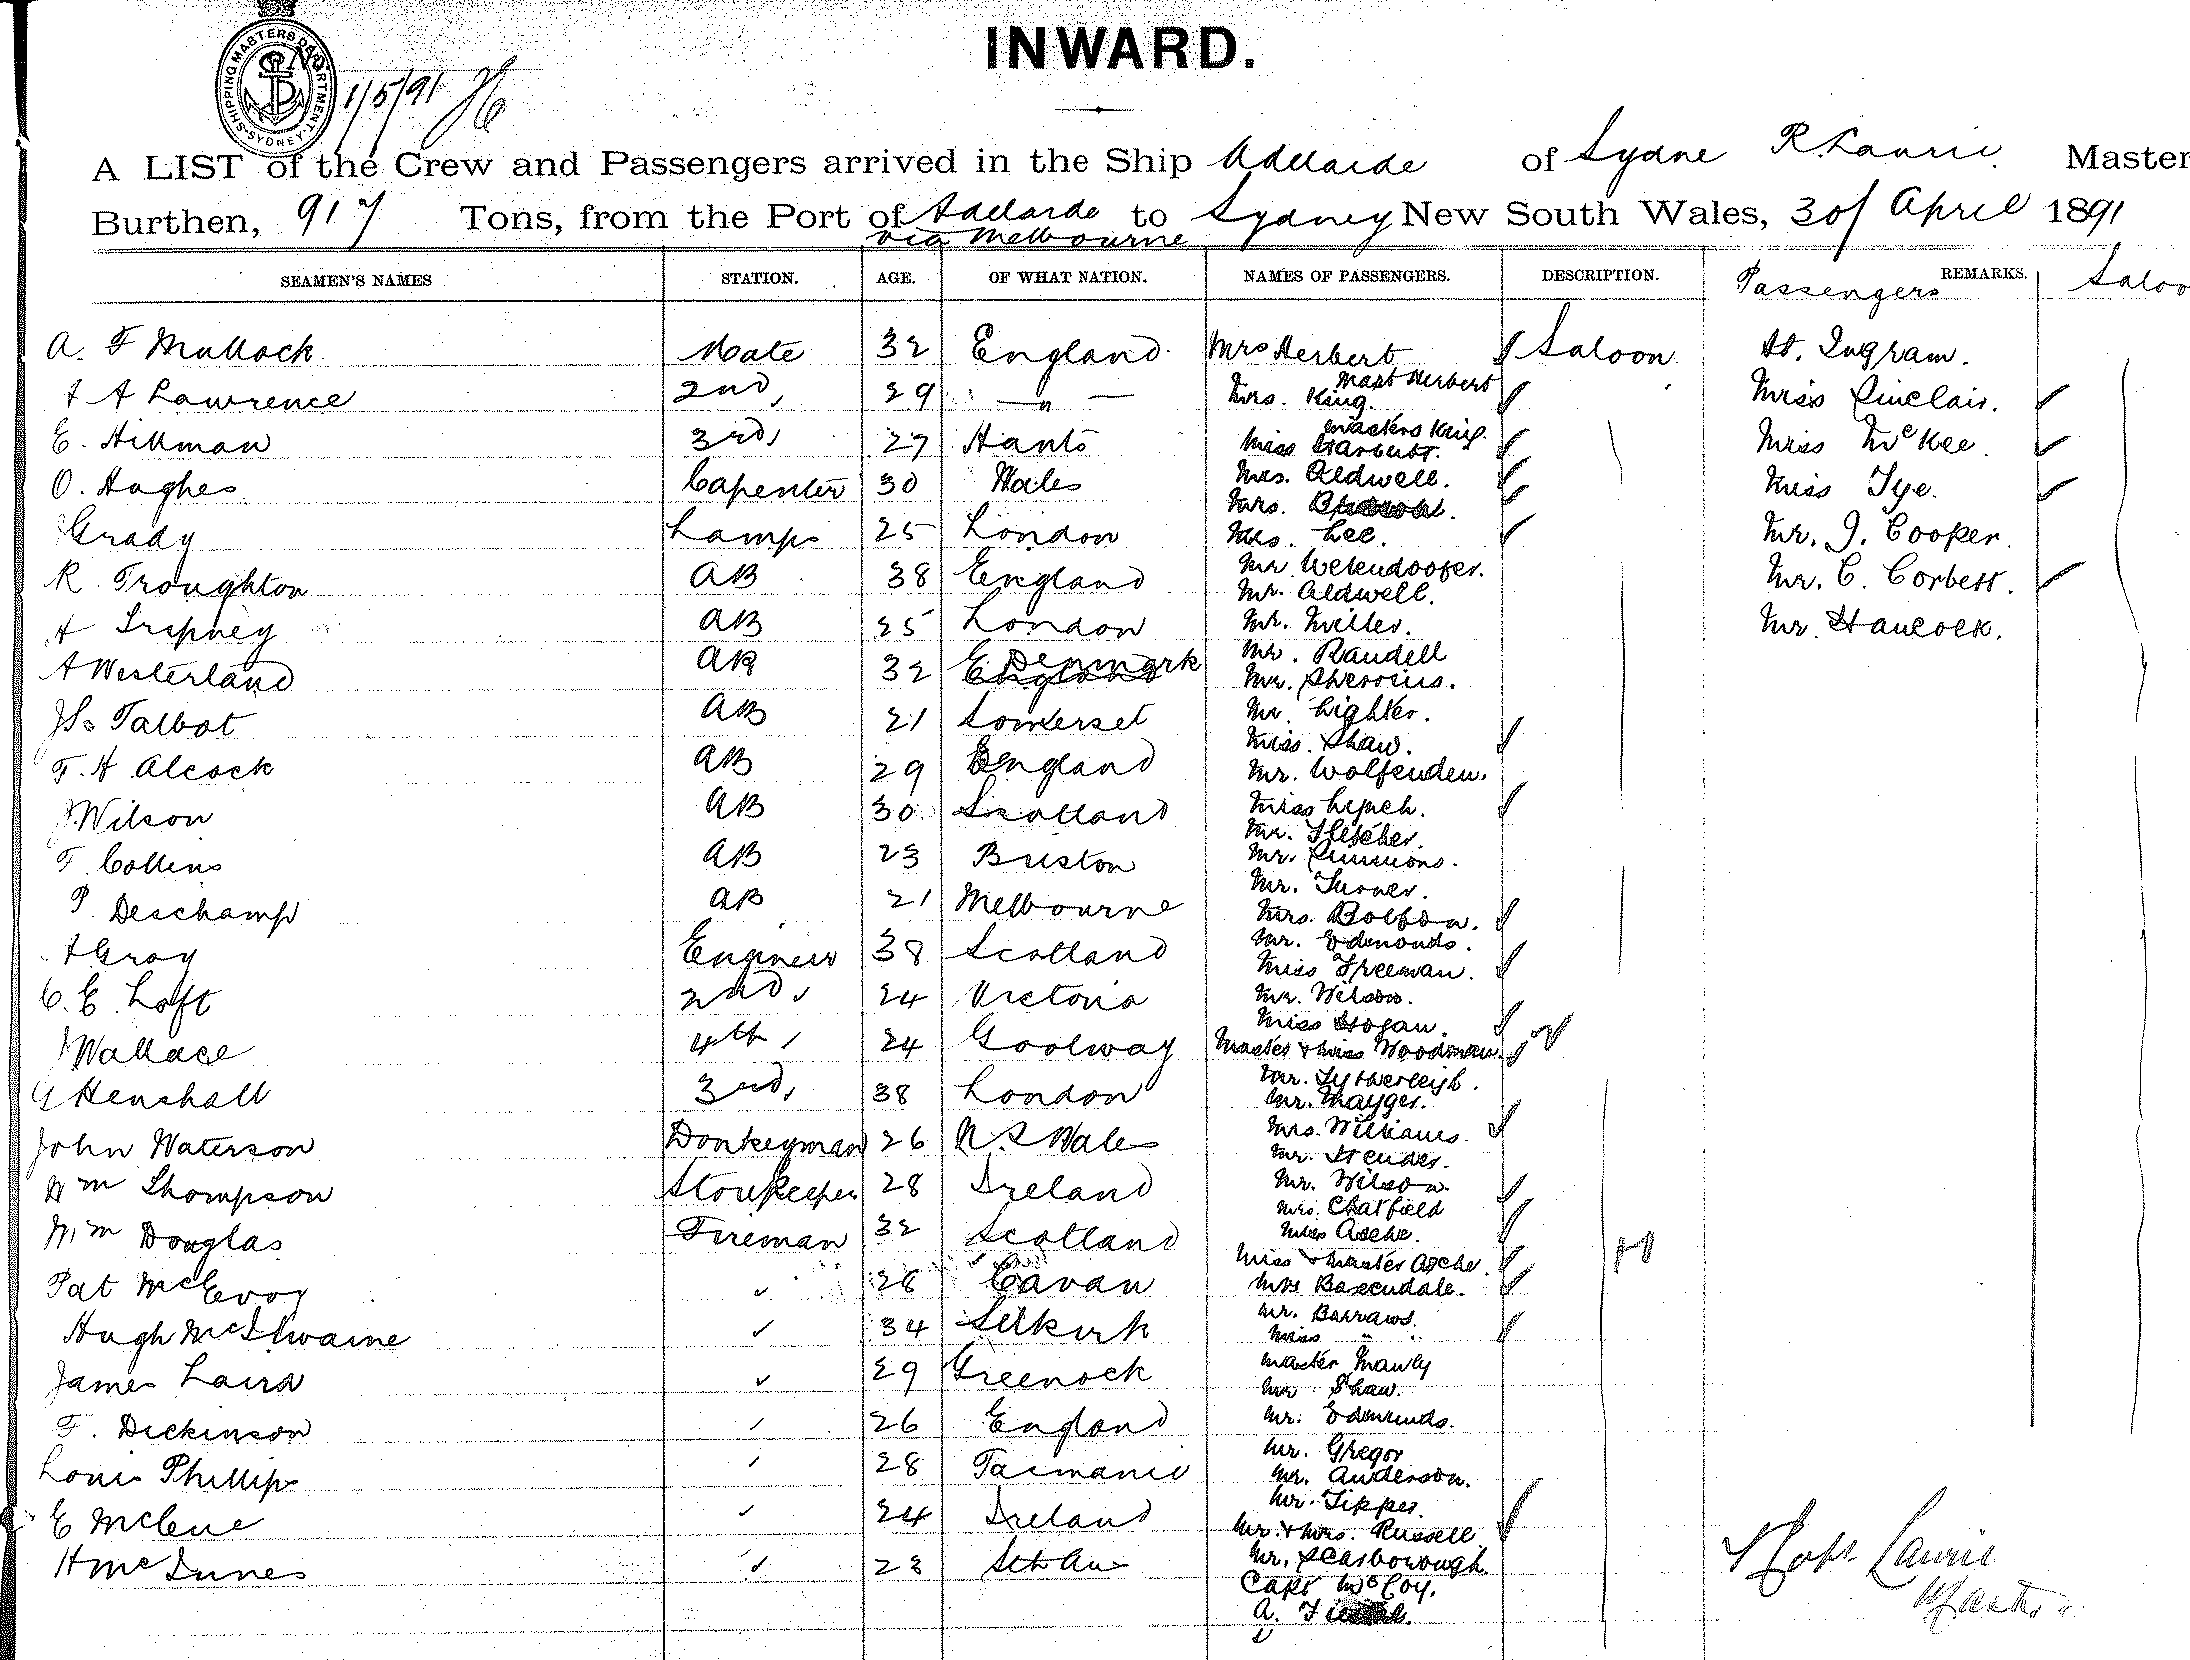 INWARD.
SHIPPING MASTERS DEPARTMENT SYDNEY
1/5/91
A LIST of the Crew and Passengers arrived in the Ship Adelaide of Sydne R. Laurie Master
Burthen, 917 Tons, from the Port of Adelaide to Sydney New South Wales, 30/ April 1891
via Melbourne
SEAMEN'S NAMES STATION. AGE. OF WHAT NATION. NAMES OF PASSENGERS. DESCRIPTION. REMARKS.
Passengers Saloo
A. F Mullock Mate 32 England Mrs Herbert Saloon H. Ingram.
Mast Herbert
A Lawrence 2nd, 29 — " — Mrs. King. Miss Sinclair.
Masters King.
E. Hillman 3rd, 27 Hants Miss Harbutt. Miss McKee
O. Hughes Capenter 30 Wales Mrs. Aldwell. Miss Tye.
Mrs.
Grady Lamps 25 London Mrs. Lee. Mr. J. Cooper.
R. Troughton AB 38 England Mr. Mr. C. Corbett.
Mr. Aldwell.
A AB 25 London Mr. Miller. Mr. Hancock.
A Westerland AB 32 Denmark Mr. Randell
England Mr.
Js Talbot AB 21 Somerset Mr. Lighter.
Miss. Shaw.
F. H Alcock AB 29 England Mr. Wolfenden.
J Wilson AB 30 Scotland Miss Lynch.
Mr. Fletcher.
F. Collins AB 23 Briston Mr. Simmons.
Mr. Turner.
P. Deschamp AB 21 Melbourne Mrs.
Mr. Edmonds.
Gray Engineer 38 Scotland Miss Freeman.
C. E. Loft 2nd, 24 Victoria Mr. Wilson.
Miss Hogan.
J Wallace 4th, 24 Goolway Master & Miss Woodman.
Mr. Tytherleigh.
G Henshall 3rd, 38 London Mr. Mayger.
Mrs. Williams.
John Waterson Donkeyman 26 N. S Wales Mr.
Wm Thompson Storekeeper 28 Ireland Mr. Wilson.
Mrs. Chatfield
Wm Douglas Fireman 32 Scotland Mrs Asche.
Miss & Master Asche.
Pat McEvoy " 26 Cavan Mrs Baxendale.
Mr. Barraws.
Hugh McIlwaine " 34 Selkirk Miss " "
Master Manly
James Laird " 29 Greenock Mr Shaw.
F. Dickinson " 26 England Mr. Edmunds.
Mr. Gregor
Louis Phillips " 28 Tasmania Mr. Anderson.
Mr. Tipper.
E McCue " 24 Ireland Mr. & Mrs. Russell
H McInnes " 23 Sth Aus Mr. Scarborough
Capt McCoy.
A.
Robt Laurie
Master